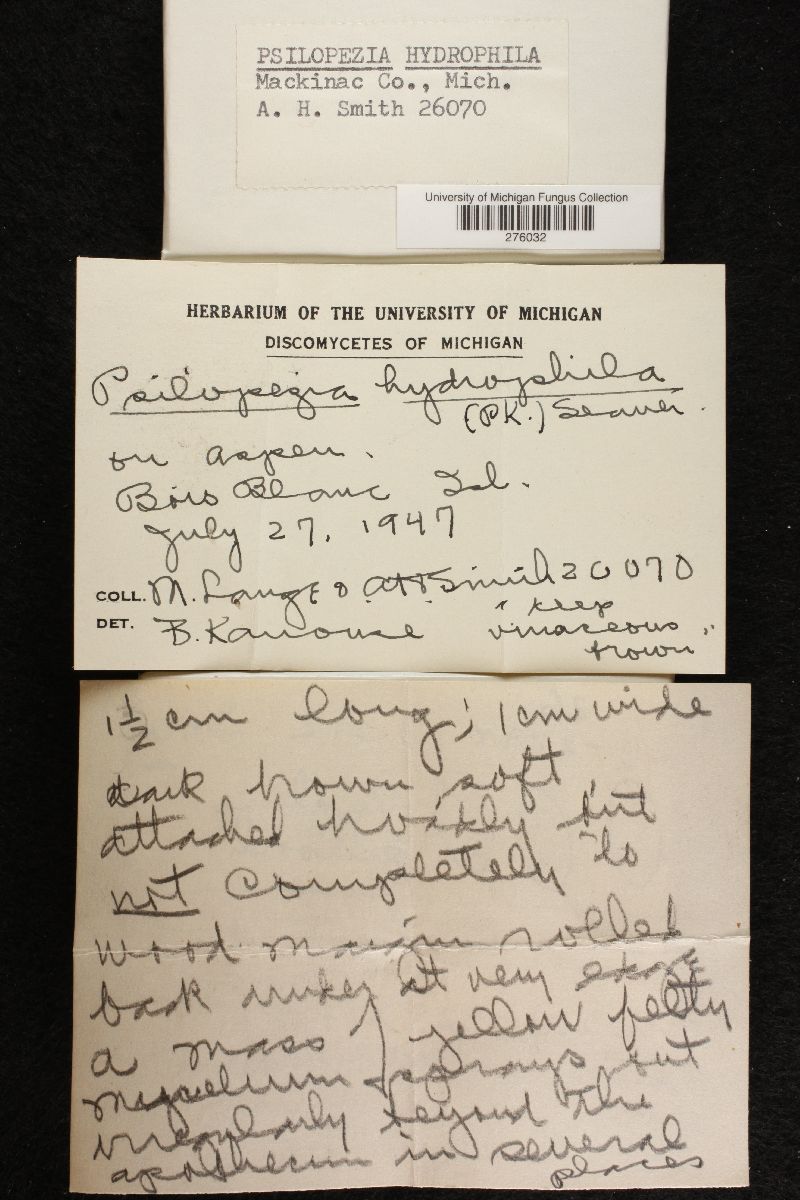 PSILOPEZIA HYDROPHILA
Mackinac Co., Mich.
A. H. Smith 26070
University of Michigan Fungus Collection
276032
HERBARIUM OF THE UNIVERSITY OF MICHIGAN
DISCOMYCETES OF MICHIGAN
Psilopezia hydrophila
(PK.) Seaver.
on aspen.
Bois Blanc Isl.
July 27, 1947
COLL. M. Lange & AHSmith 26070
DET. B. Kanouse "deep
vinaceous
brown"
1 1/2 cm long; 1 cm wide
dark brown, soft,
attached broadly but
not completely to
wood. margin rolled
back under at very edge
a mass yellow felty
mycelium sprays out
irregularly beyond the
apothecium in several
places